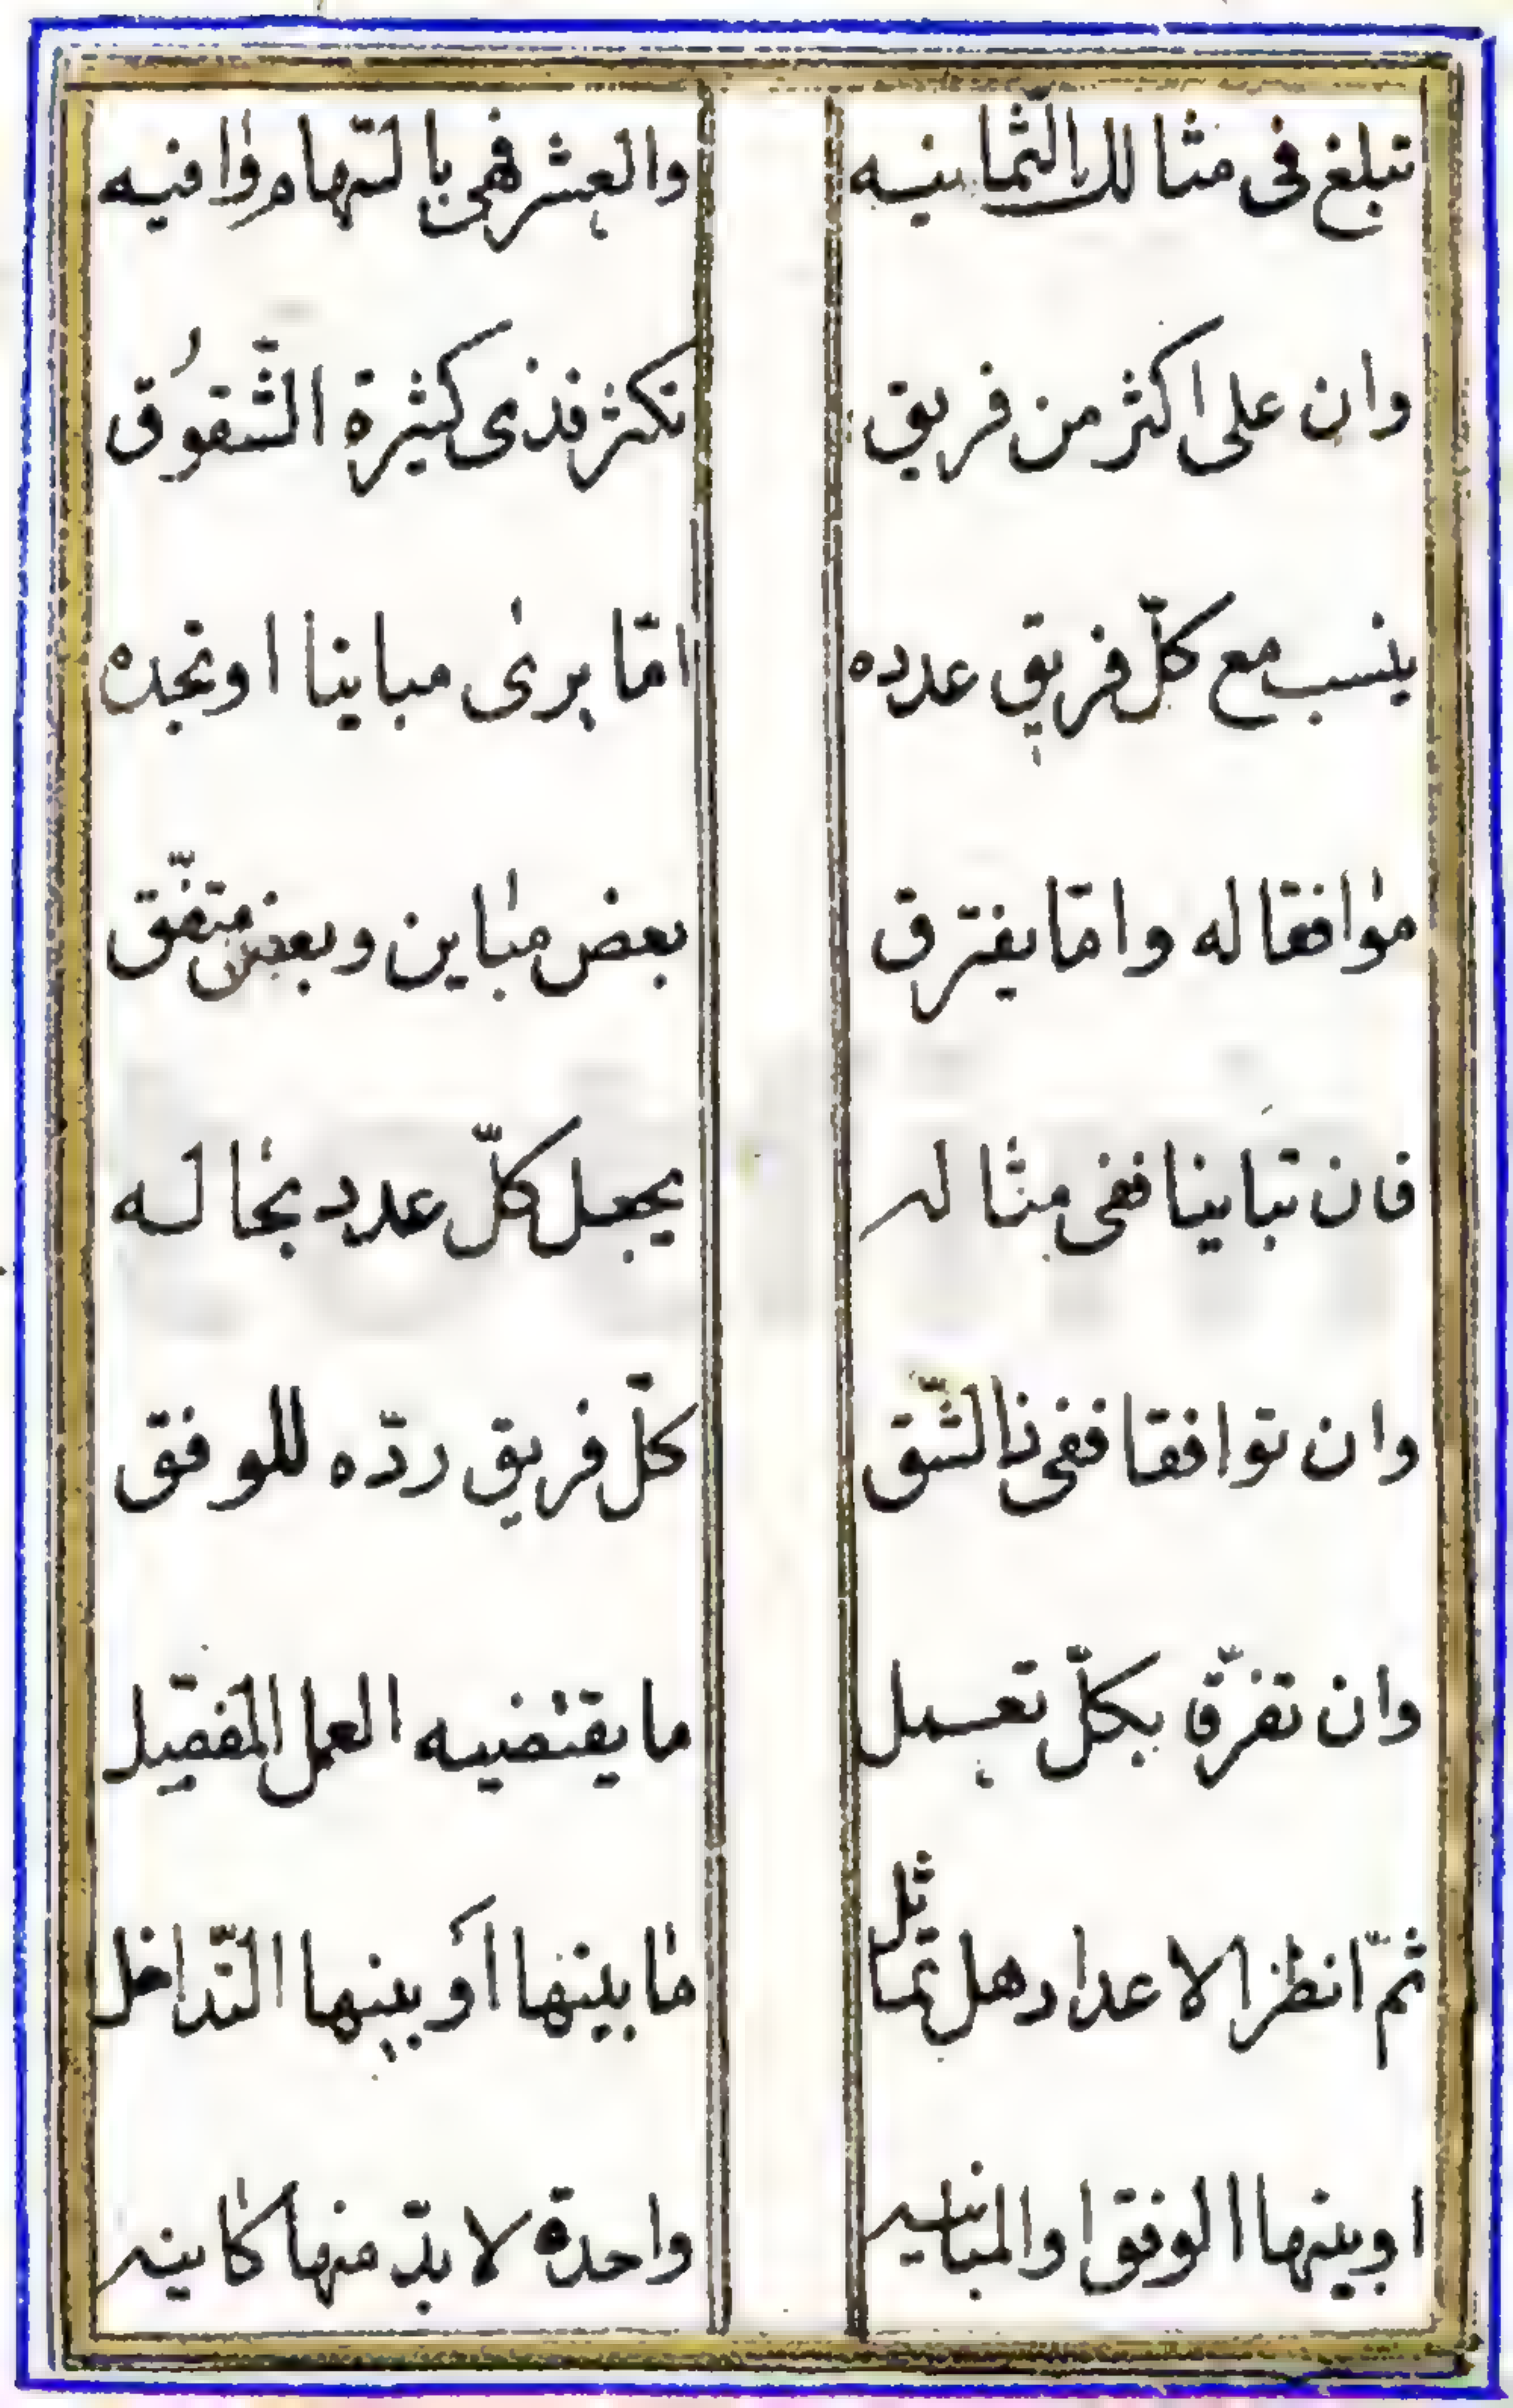 تبلغ فى مثالك الثّمانيه والعشر فهى بالسّهام وافيه
وان على اكثر من فريق تكثر فذى كثيرة الشّقوق
ينسب مع كلّ فريق عدده امّا يرى مباينا او تجده
موافقا له وامّا يفترق بعض مباين وبعض متّفق
فان تباينا ففى مثاله يجعل كلّ عدد بحاله
وان توافقا ففى ذا الشّق كلّ فريق ردّه للوفق
وان تفرّق بكلّ تعمل ما يقتضيه العمل المفصّل
ثمّ انظر الاعداد هل تماثل ما بينها أو بينها التّداخل
او بينها الوفق او المباينه واحدة لا بدّ منها كاينه